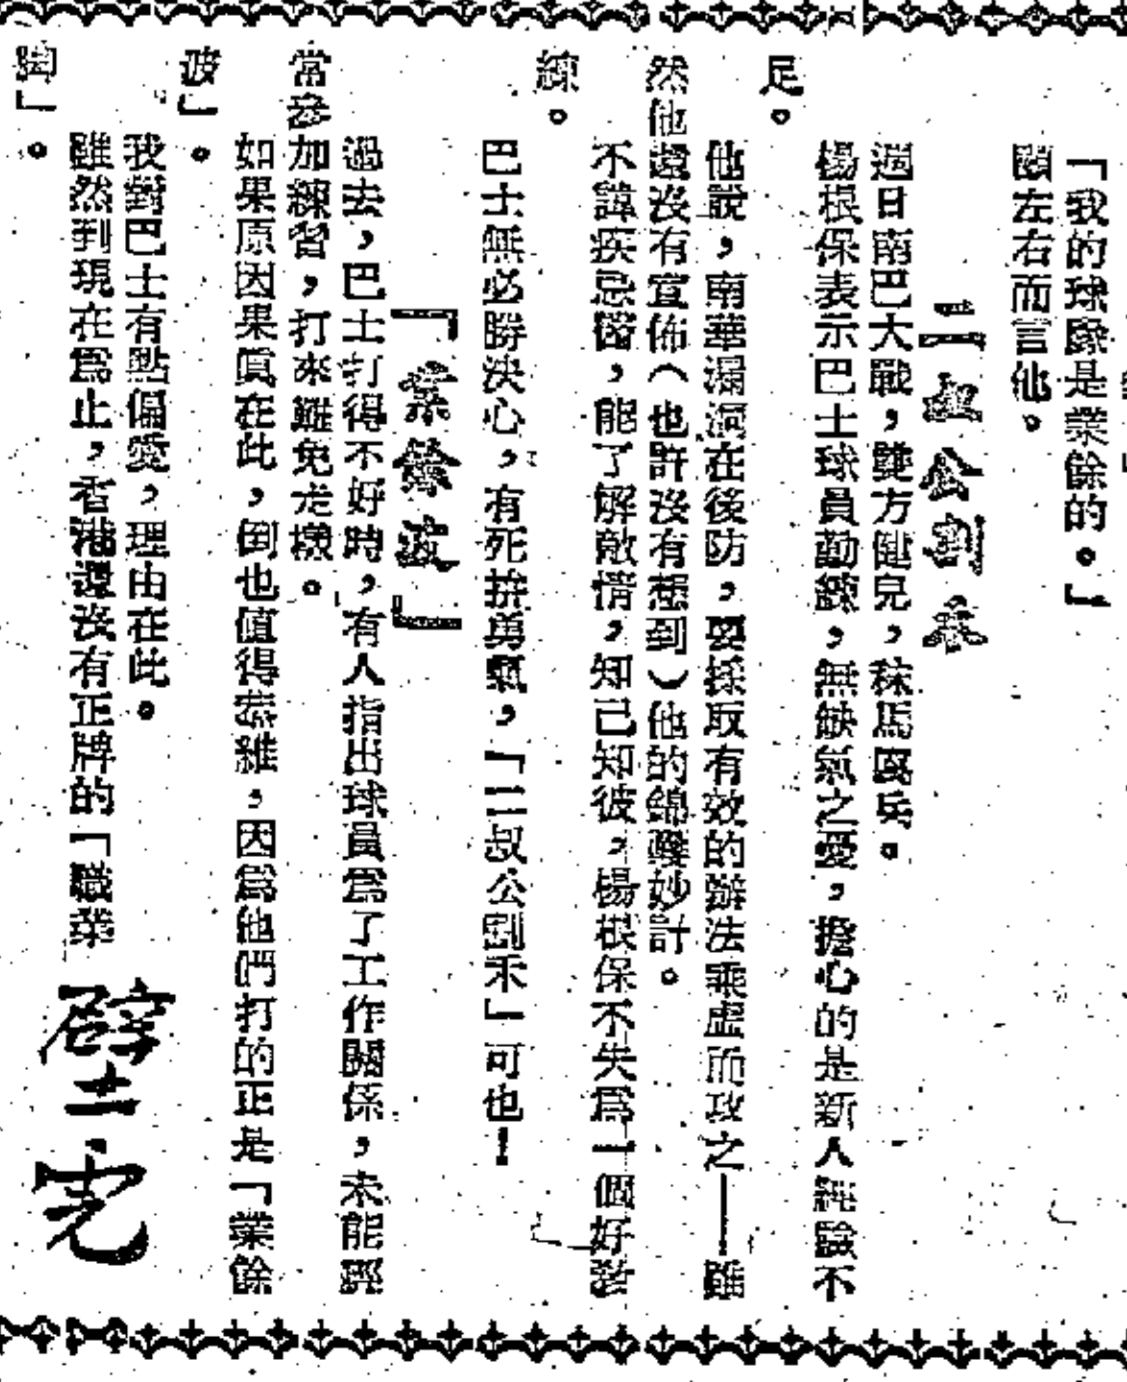 「我的球隊是業餘的。」
顧左右而言他。
二叔公割禾
週日南巴大戰，雙方健兒，秣馬厲兵。
楊根保表示巴士球員勤練，無缺氣之憂，擔心的是新人經驗不
足。
他說，南華漏洞在後防，要採取有效的辦法乘虛而攻之——雖
然他還沒有宣佈（也許沒有想到）他的錦囊妙計。
不諱疾忌醫，能了解敵情，知己知彼，楊根保不失爲一個好敎
練。
巴士無必勝決心，有死拚勇氣，「二叔公割禾」可也！
「業餘波」
過去，巴士打得不好時，有人指出球員爲了工作關係，未能經
常參加練習，打來難免走樣。
如果原因果眞在此，倒也値得恭維，因爲他們打的正是「業餘
波」。
我對巴士有點偏愛，理由在此。
雖然到現在爲止，香港還沒有正牌的「職業
脚」。
壁上